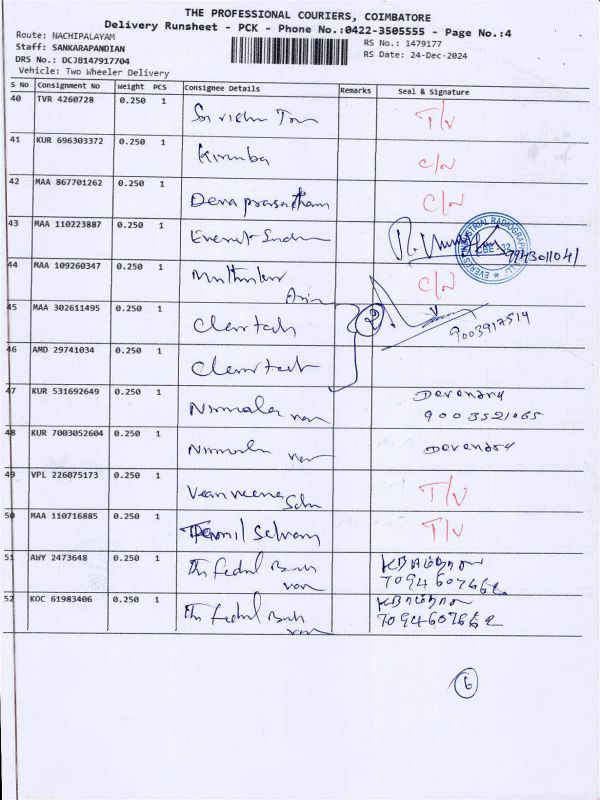 THE PROFESSIONAL COURIERS, COIMBATORE
Delivery Runsheet - PCK - Phone No.:0422-3505555 - Page No.:4
Route: NACHIPALAYAM
RS No.: 1479177
Staff: SANKARAPANDIAN
RS Date: 24-Dec-2024
DRS No.: DCJB147917704
Vehicle: Two Wheeler Delivery
S No Consignment No Weight PCS Consignee Details Remarks Seal & Signature
40 TVR 4260728 0.250 1 T/V
41 KUR 696303372 0.250 1 Kirumba C/N
42 MAA 867701262 0.250 1 Deva prasatham C/N
43 MAA 110223887 0.250 1 Everest 9943011041
44 MAA 109260347 0.250 1 C/N
45 MAA 302611495 0.250 1 2 9003917514
46 AMD 29741034 0.250 1
47 KUR 531692649 0.250 1 Nirmala Devendra
9003521065
48 KUR 7003052604 0.250 1 Nirmala Devendra
49 VPL 226075173 0.250 1 T/V
50 MAA 110716885 0.250 1 Tamil Selvam T/V
51 AWY 2473648 0.250 1 The Fedral Bank
7094607662
52 KOC 61983406 0.250 1 The Fedral Bank
7094607662
6